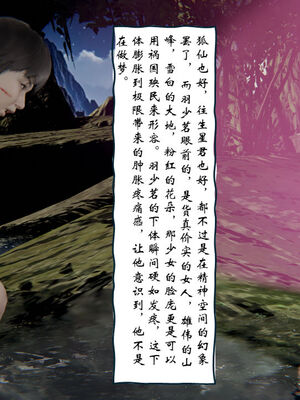 狐仙也好，往生星君也好，都不过是在精神空间的幻象
罢了，而羽少茗眼前的，是货真价实的女人，雄伟的山
峰，雪白的大地，粉红的花朵，那少女的脸庞更是可以
用祸国殃民来形容。羽少茗的下体瞬间硬如发疼，这下
体膨胀到极限带来的肿胀疼痛感，让他意识到，他不是
在做梦。